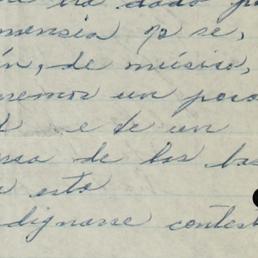 ha dado p
mensia
n, de música,
remos un poco
e de un
sa de los ba
a esto
dignarse contest